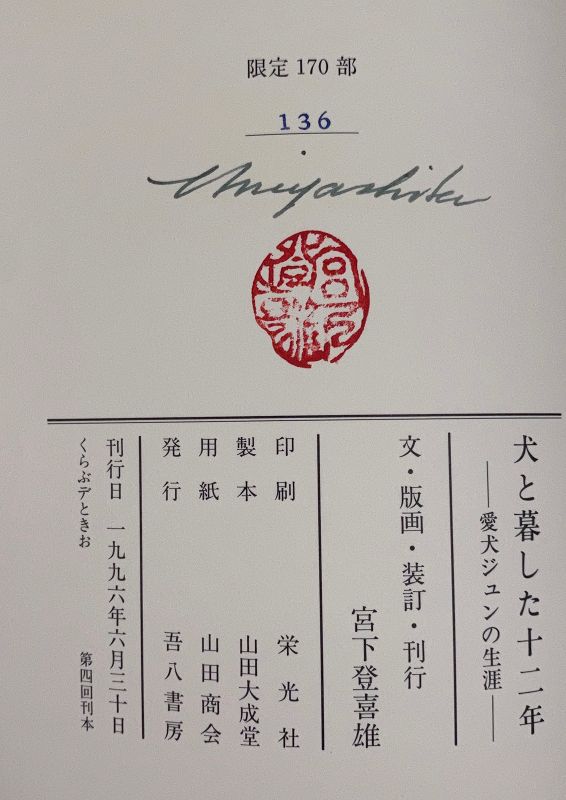 限定 170 部
136
Miyashita
犬と暮した十二年
――愛犬ジュンの生涯――
文・版画・装訂・刊行
宮下登喜雄
印刷 栄光社
製本 山田大成堂
用紙 山田商会
発行 吾八書房
刊行日 一九九六年六月三十日
くらぶデときお 第四回刊本